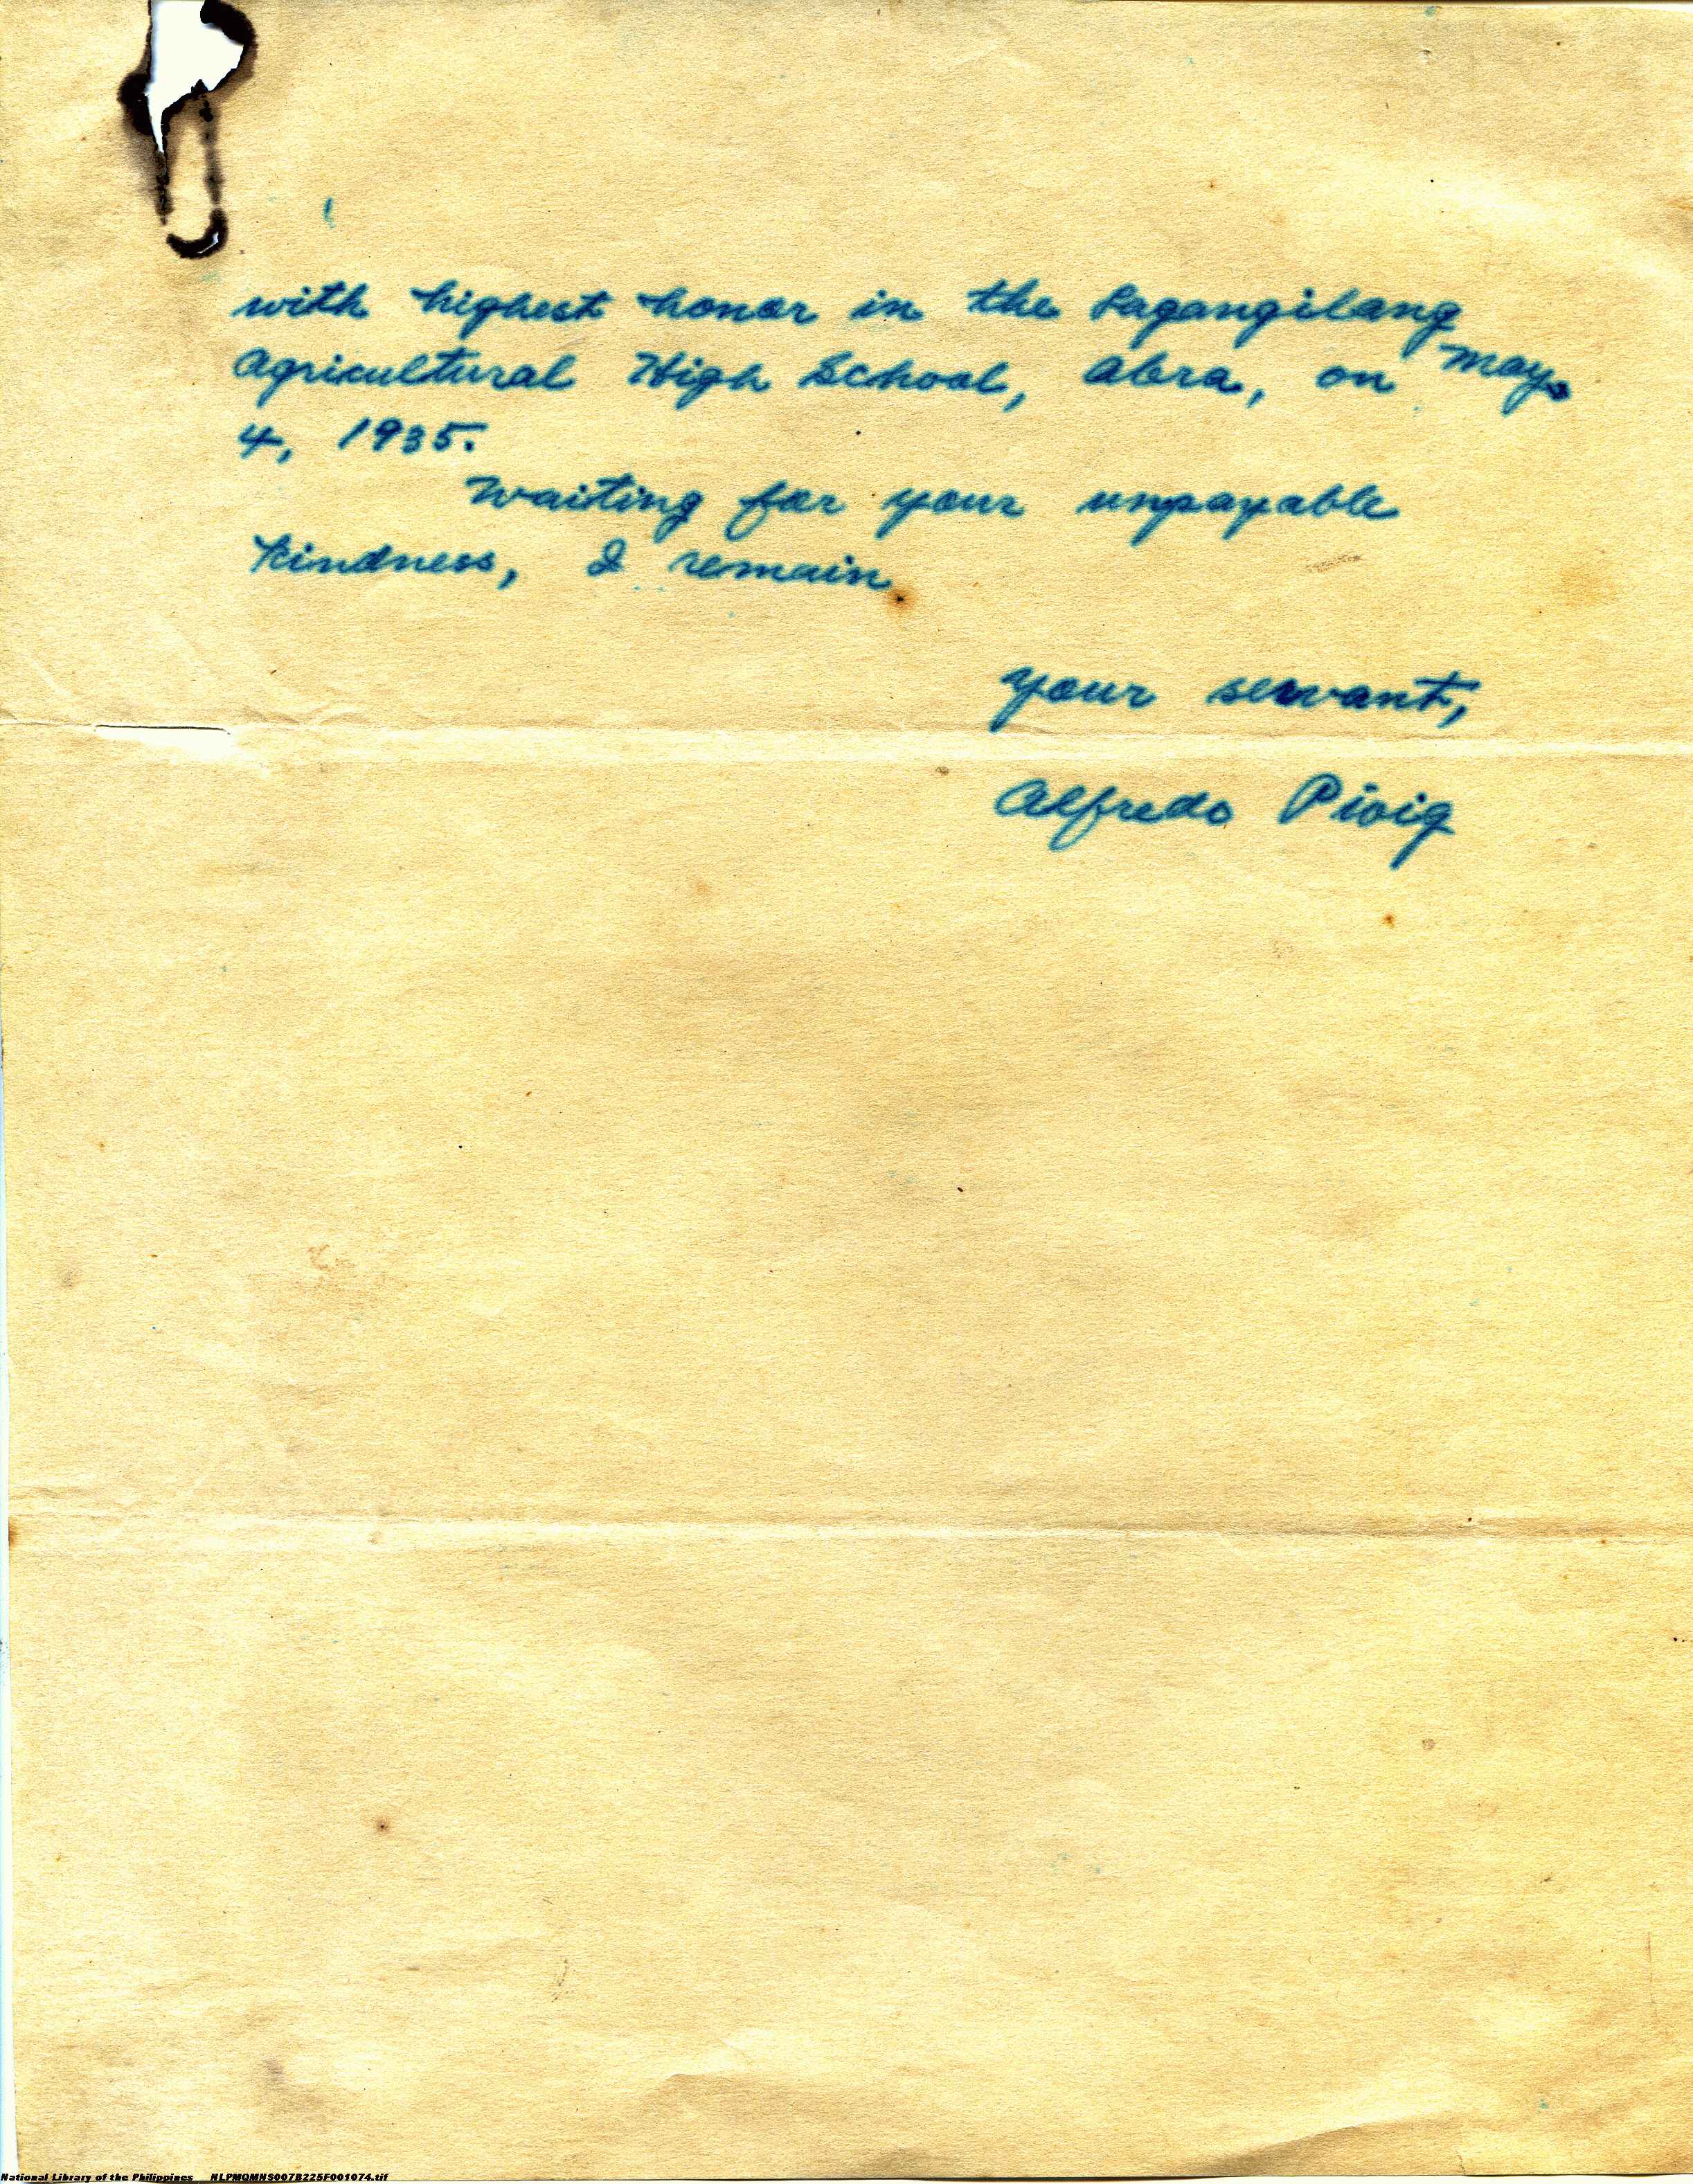 with highest honor in the Lagangilang
Agricultural High School, Abra, on May
4, 1935.
Waiting for your unpayable
kindness, I remain
Your servant,
Alfredo Pivig
National Library of the Philippines NLPMQMNS007B225F001074.tif